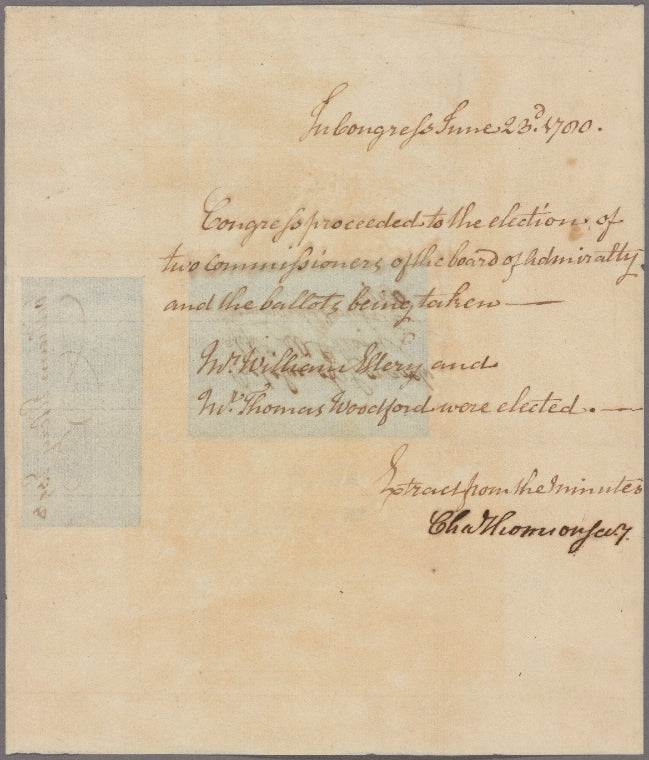 In Congress June 23.d 1780.
Congress proceeded to the election of
two commissioners of the board of Admiralty
and the ballots being taken —
Mr. William Ellery and
Mr. Thomas Woodford were elected. —
Extract from the minutes
Cha Thomson secy.